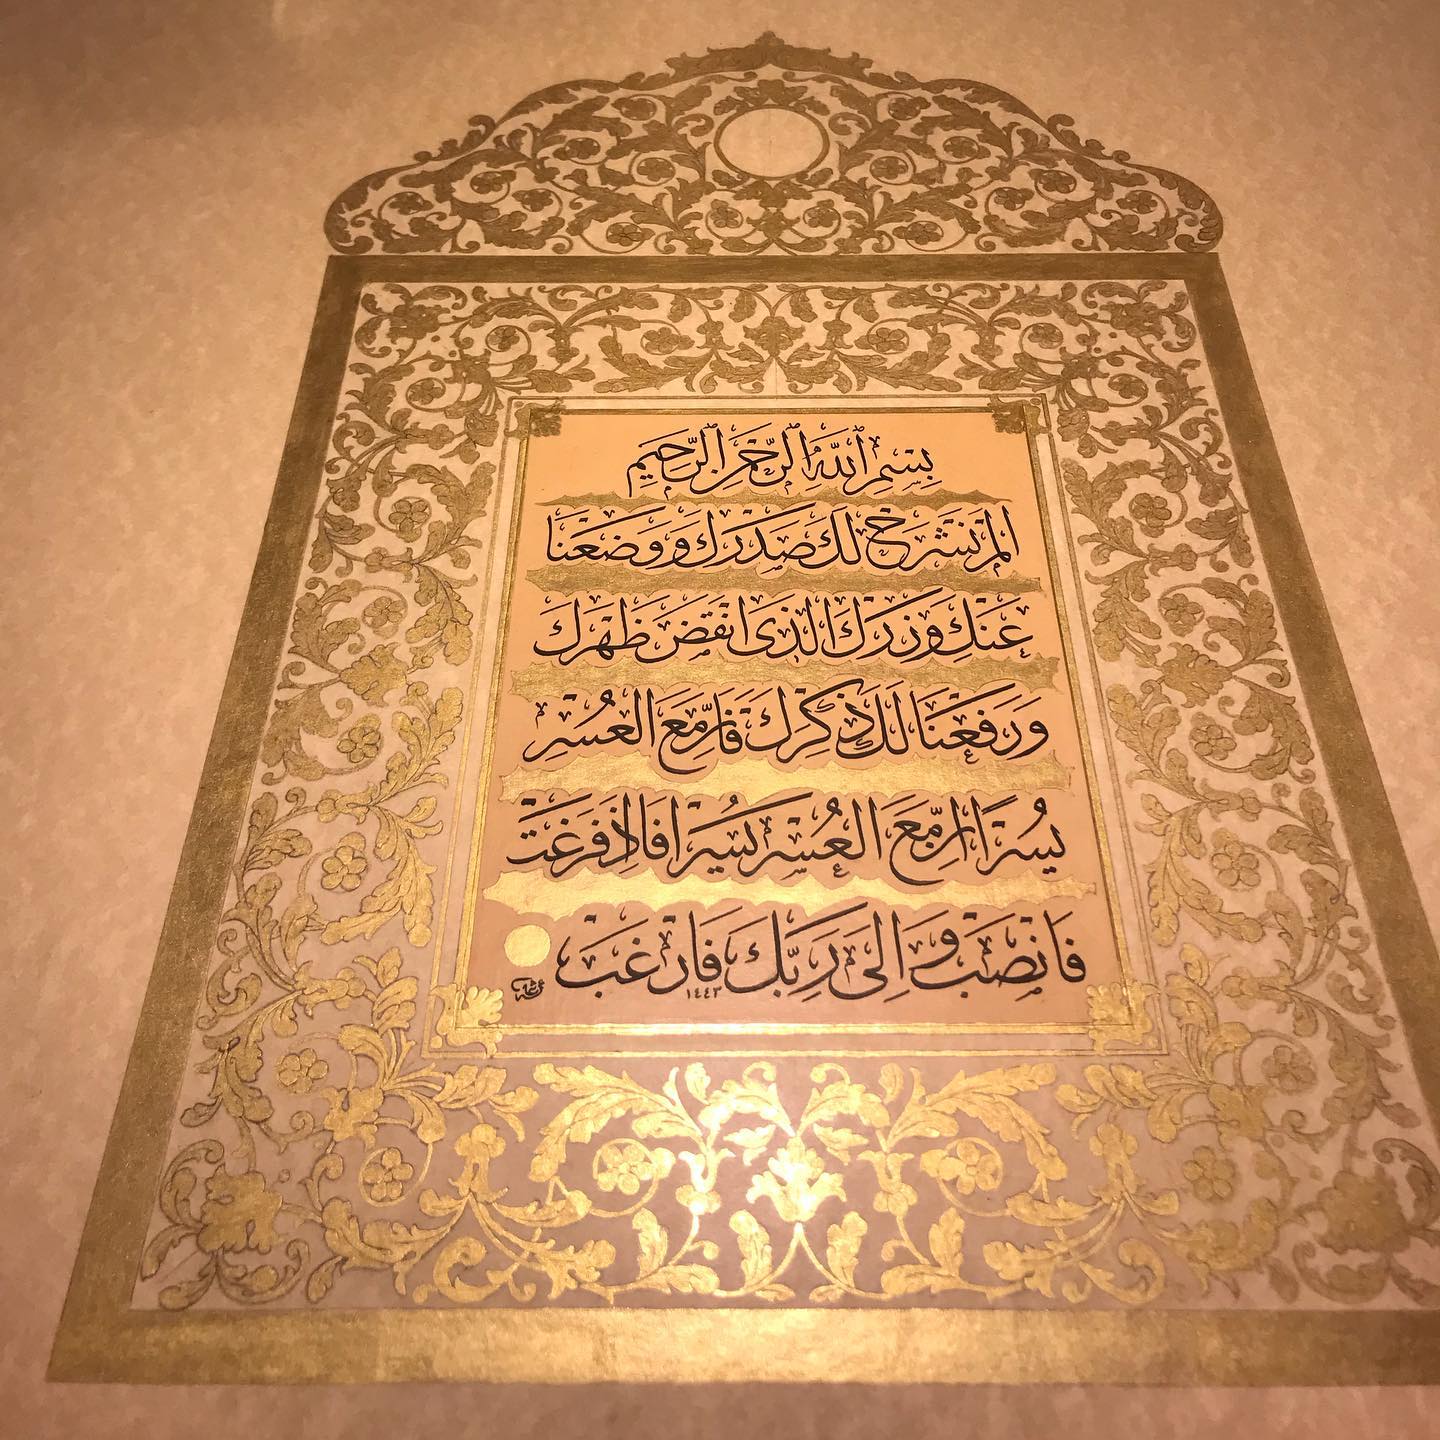 بِسْمِ اللّٰهِ الرَّحْمٰنِ الرَّحِيمِ
اَلَمْ نَشْرَحْ لَكَ صَدْرَكَ وَوَضَعْنَا
عَنْكَ وِزْرَكَ الَّذٖى اَنْقَضَ ظَهْرَكَ
وَرَفَعْنَا لَكَ ذِكْرَكَ فَاِنَّ مَعَ الْعُسْرِ
يُسْرًا اِنَّ مَعَ الْعُسْرِ يُسْرًا فَاِذَا فَرَغْتَ
فَانْصَبْ وَاِلٰى رَبِّكَ فَارْغَبْ
١٤٤٣